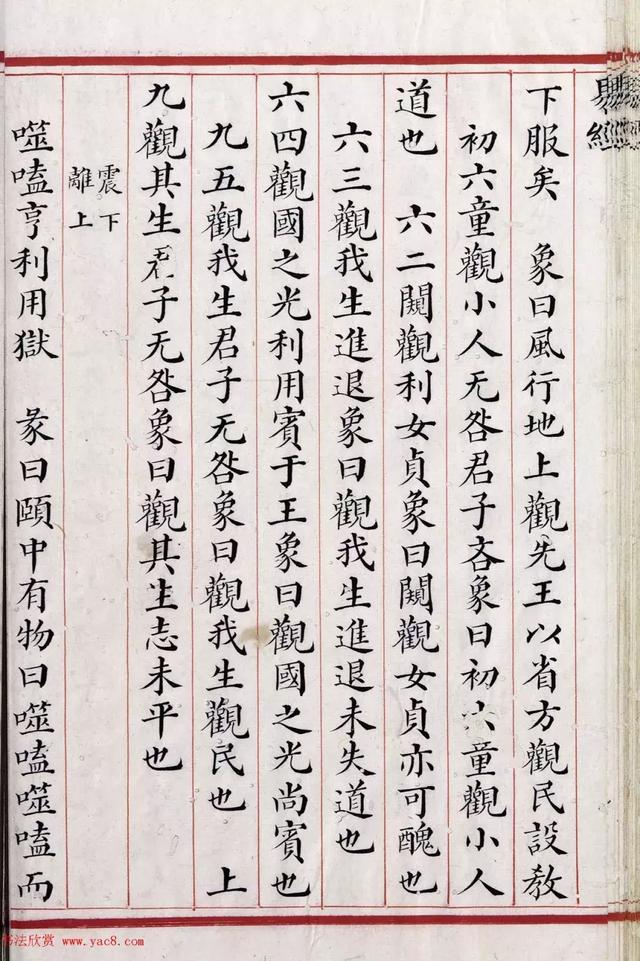 易經
下服矣　象曰風行地上觀先王以省方觀民設教
初六童觀小人无咎君子吝象曰初六童觀小人
道也　六二闚觀利女貞象曰闚觀女貞亦可醜也
六三觀我生進退象曰觀我生進退未失道也
六四觀國之光利用賓于王象曰觀國之光尚賓也
九五觀我生君子无咎象曰觀我生觀民也　上
九觀其生君子无咎象曰觀其生志未平也
震下
離上
噬嗑亨利用獄　彖曰頤中有物曰噬嗑噬嗑而
书法欣赏 www.yac8.com